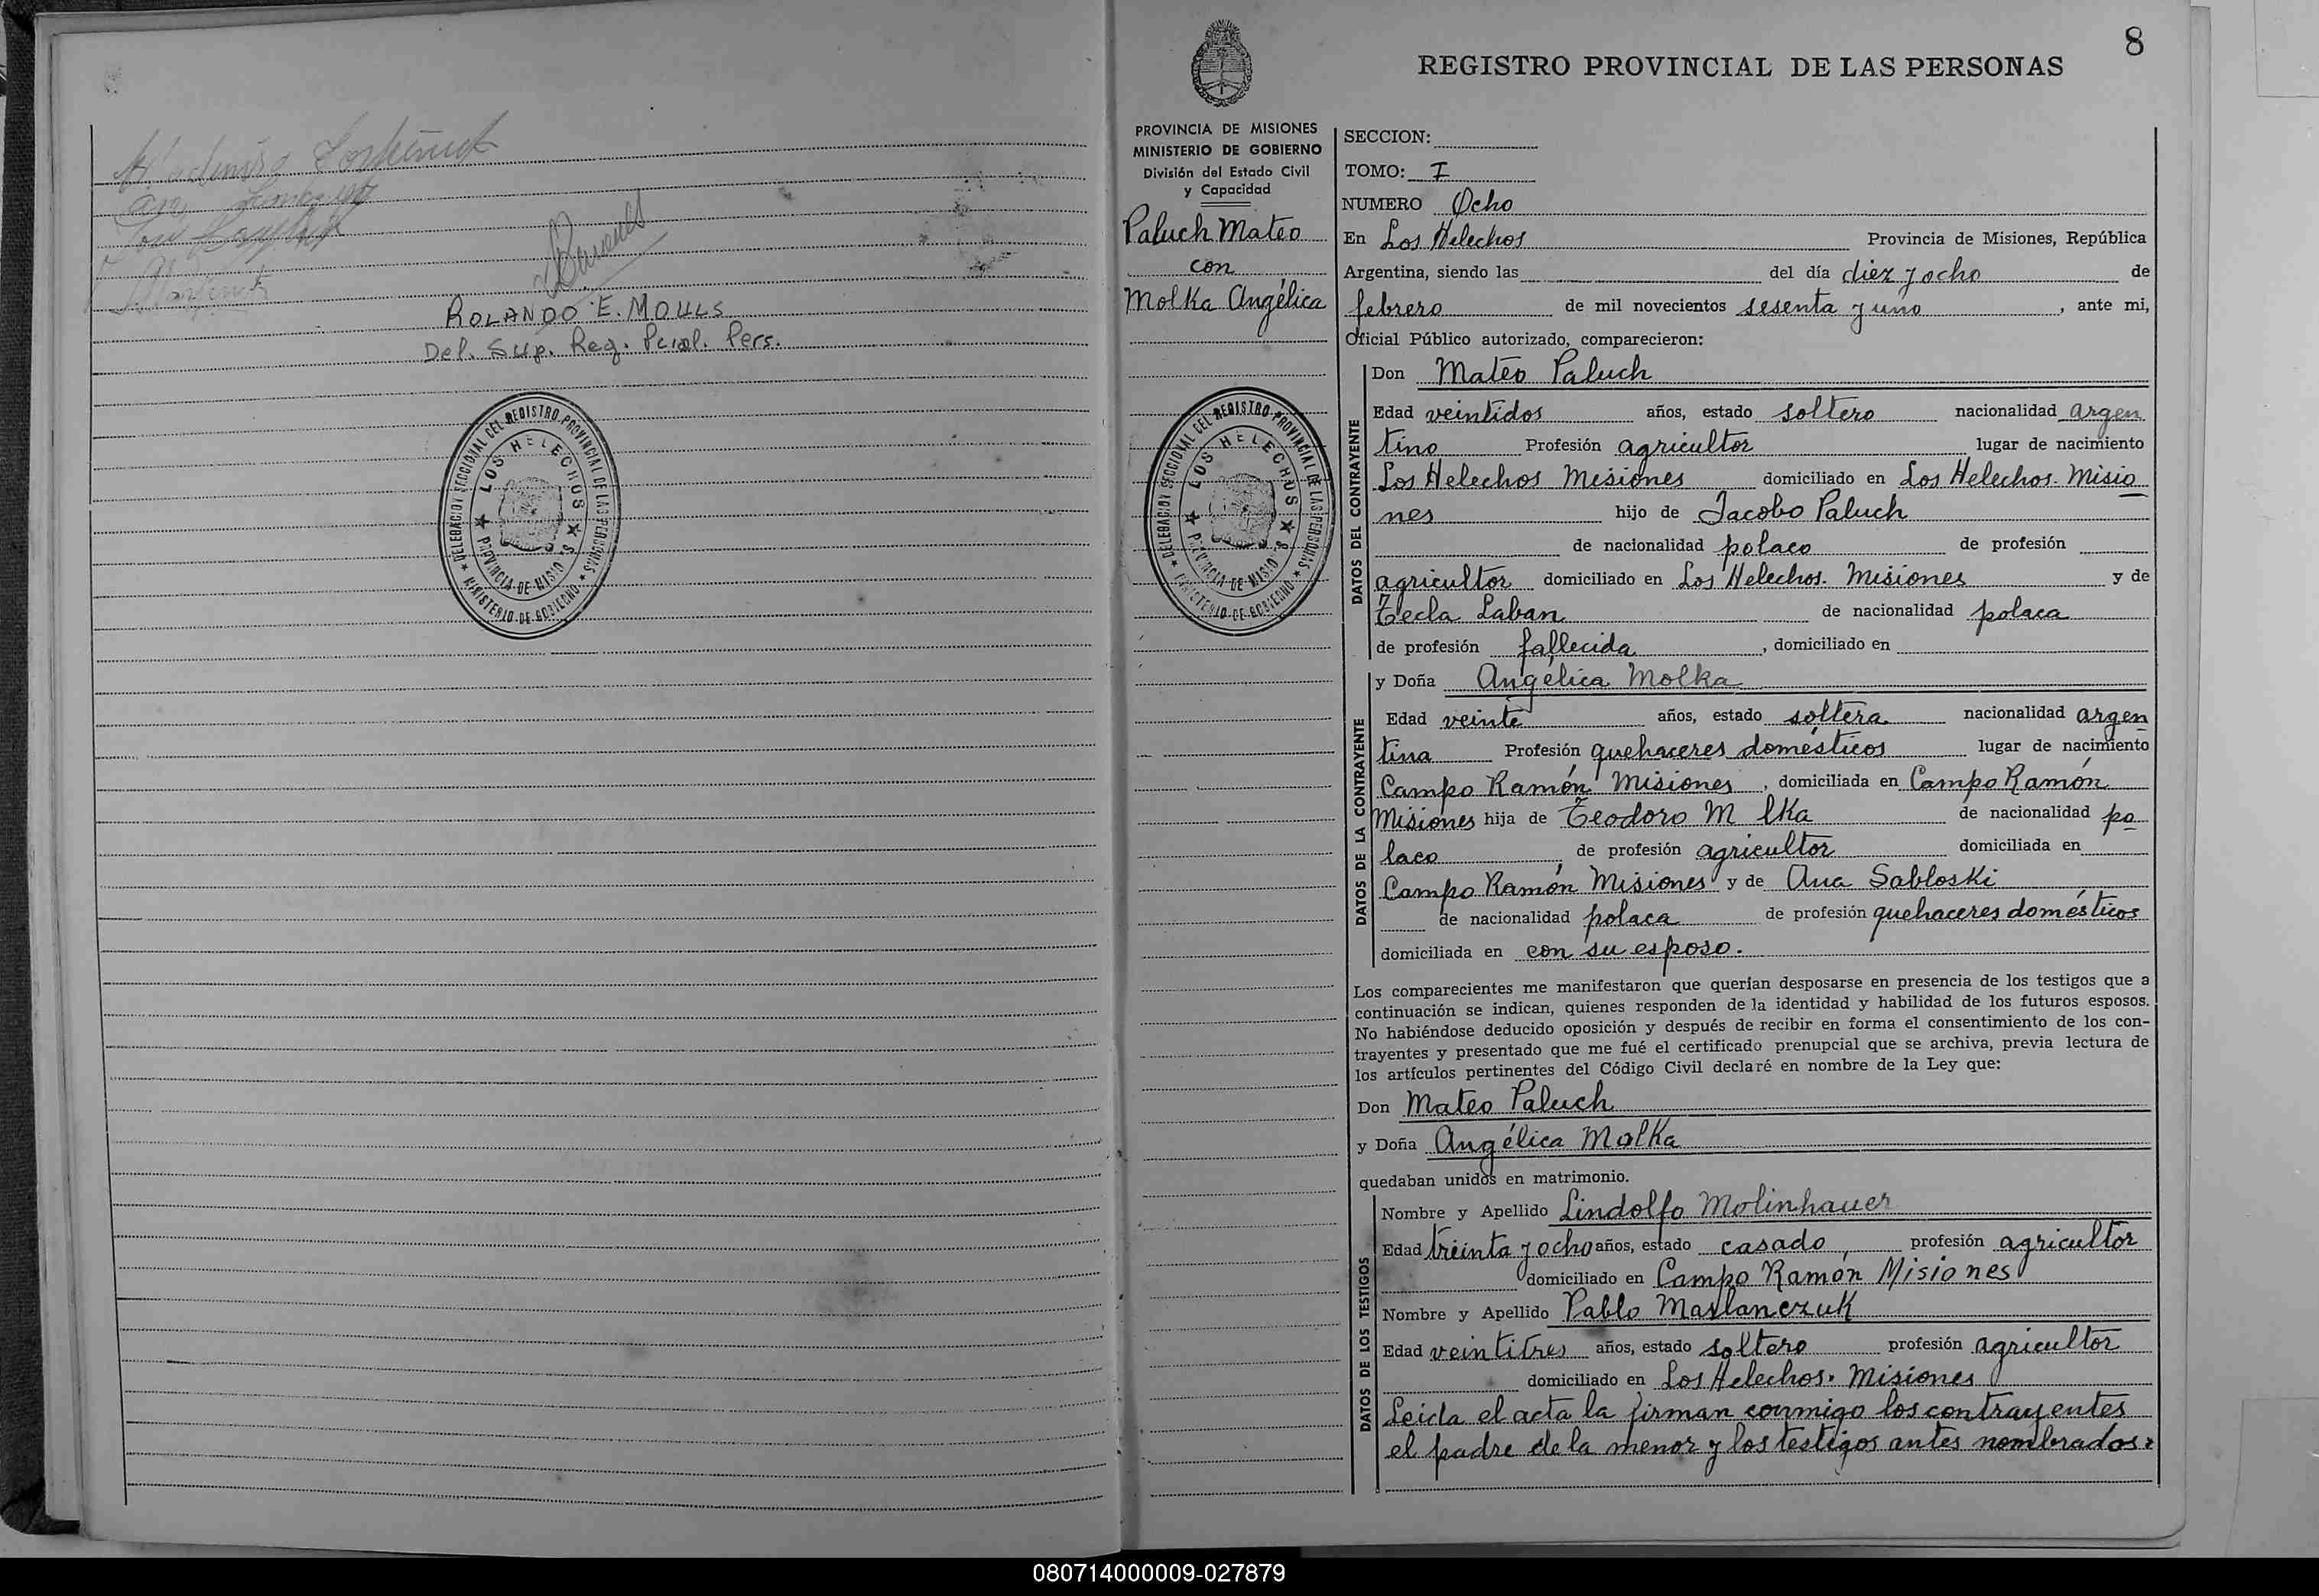 ROLANDO E. MOULS
Del. Sup. Reg. Pcial. Pers.
DELEGACION SECCIONAL DEL REGISTRO PROVINCIAL DE LAS PERSONAS
★ MINISTERIO DE GOBIERNO ★
LOS HELECHOS
★ PROVINCIA DE MISIO S. ★
8
REGISTRO PROVINCIAL DE LAS PERSONAS
PROVINCIA DE MISIONES
MINISTERIO DE GOBIERNO
División del Estado Civil
y Capacidad
Paluch Mateo
con
Molka Angélica
DELEGACION SECCIONAL DEL REGISTRO PROVINCIAL DE LAS PERSONAS
★ MINISTERIO DE GOBIERNO ★
LOS HELECHOS
★ PROVINCIA DE MISIO S. ★
SECCION:
TOMO: I
NUMERO Ocho
En Los Helechos Provincia de Misiones, República
Argentina, siendo las del día diez y ocho de
febrero de mil novecientos sesenta y uno, ante mi,
Oficial Público autorizado, comparecieron:
DATOS DEL CONTRAYENTE
Don Mateo Paluch
Edad veintidos años, estado soltero nacionalidad argen
tino Profesión agricultor lugar de nacimiento
Los Helechos Misiones domiciliado en Los Helechos. Misio
nes hijo de Jacobo Paluch
de nacionalidad polaco de profesión
agricultor domiciliado en Los Helechos. Misiones y de
Tecla Laban de nacionalidad polaca
de profesión fallecida, domiciliado en
DATOS DE LA CONTRAYENTE
y Doña Angélica Molka
Edad veinte años, estado soltera nacionalidad argen
tina Profesión quehaceres domésticos lugar de nacimiento
Campo Ramón Misiones, domiciliada en Campo Ramón
Misiones hija de Teodoro M lka de nacionalidad po
laco de profesión agricultor domiciliada en
Campo Ramón Misiones y de Ana Sabloski
de nacionalidad polaca de profesión quehaceres domésticos
domiciliada en con su esposo.
Los comparecientes me manifestaron que querían desposarse en presencia de los testigos que a
continuación se indican, quienes responden de la identidad y habilidad de los futuros esposos.
No habiéndose deducido oposición y después de recibir en forma el consentimiento de los con-
trayentes y presentado que me fué el certificado prenupcial que se archiva, previa lectura de
los artículos pertinentes del Código Civil declaré en nombre de la Ley que:
Don Mateo Paluch
y Doña Angélica Molka
quedaban unidos en matrimonio.
DATOS DE LOS TESTIGOS
Nombre y Apellido Lindolfo Molinhauer
Edad treinta y ocho años, estado casado, profesión agricultor
domiciliado en Campo Ramón Misiones
Nombre y Apellido Pablo Maslanczuk
Edad veintitres años, estado soltero profesión agricultor
domiciliado en Los Helechos. Misiones
Leida el acta la firman conmigo los contrayentes
el padre de la menor y los testigos antes nombrados.
080714000009-027879